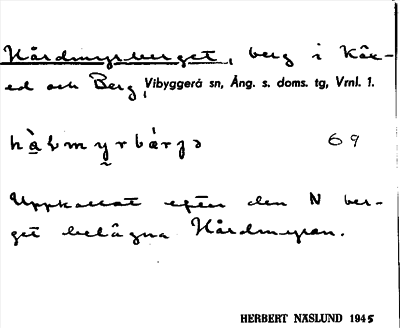 Hårdmyrberget, berg i Kåx-
ed och Berg, Vibyggerå sn, Ång. s. doms. tg, Vrnl. 1.
hàɽmyrbárjə 69
Uppkallat efter den N ber-
get belägna Hårdmyran.
HERBERT NÄSLUND 1945